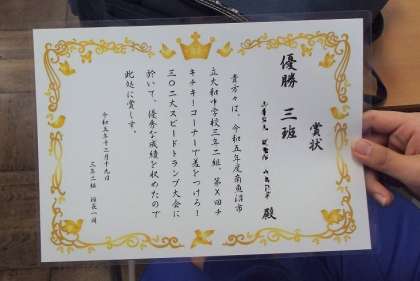 賞状
優勝 三班
殿
貴方々は、令和五年度南魚沼市
立大和中学校三年二組、第X回チ
キチキーコーナーで差をつけろ!
三〇二大スピードトランプ大会に
於いて、優秀な成績を収めたので
此処に賞します。
令和五年十二月十九日
三年二組 班長一同